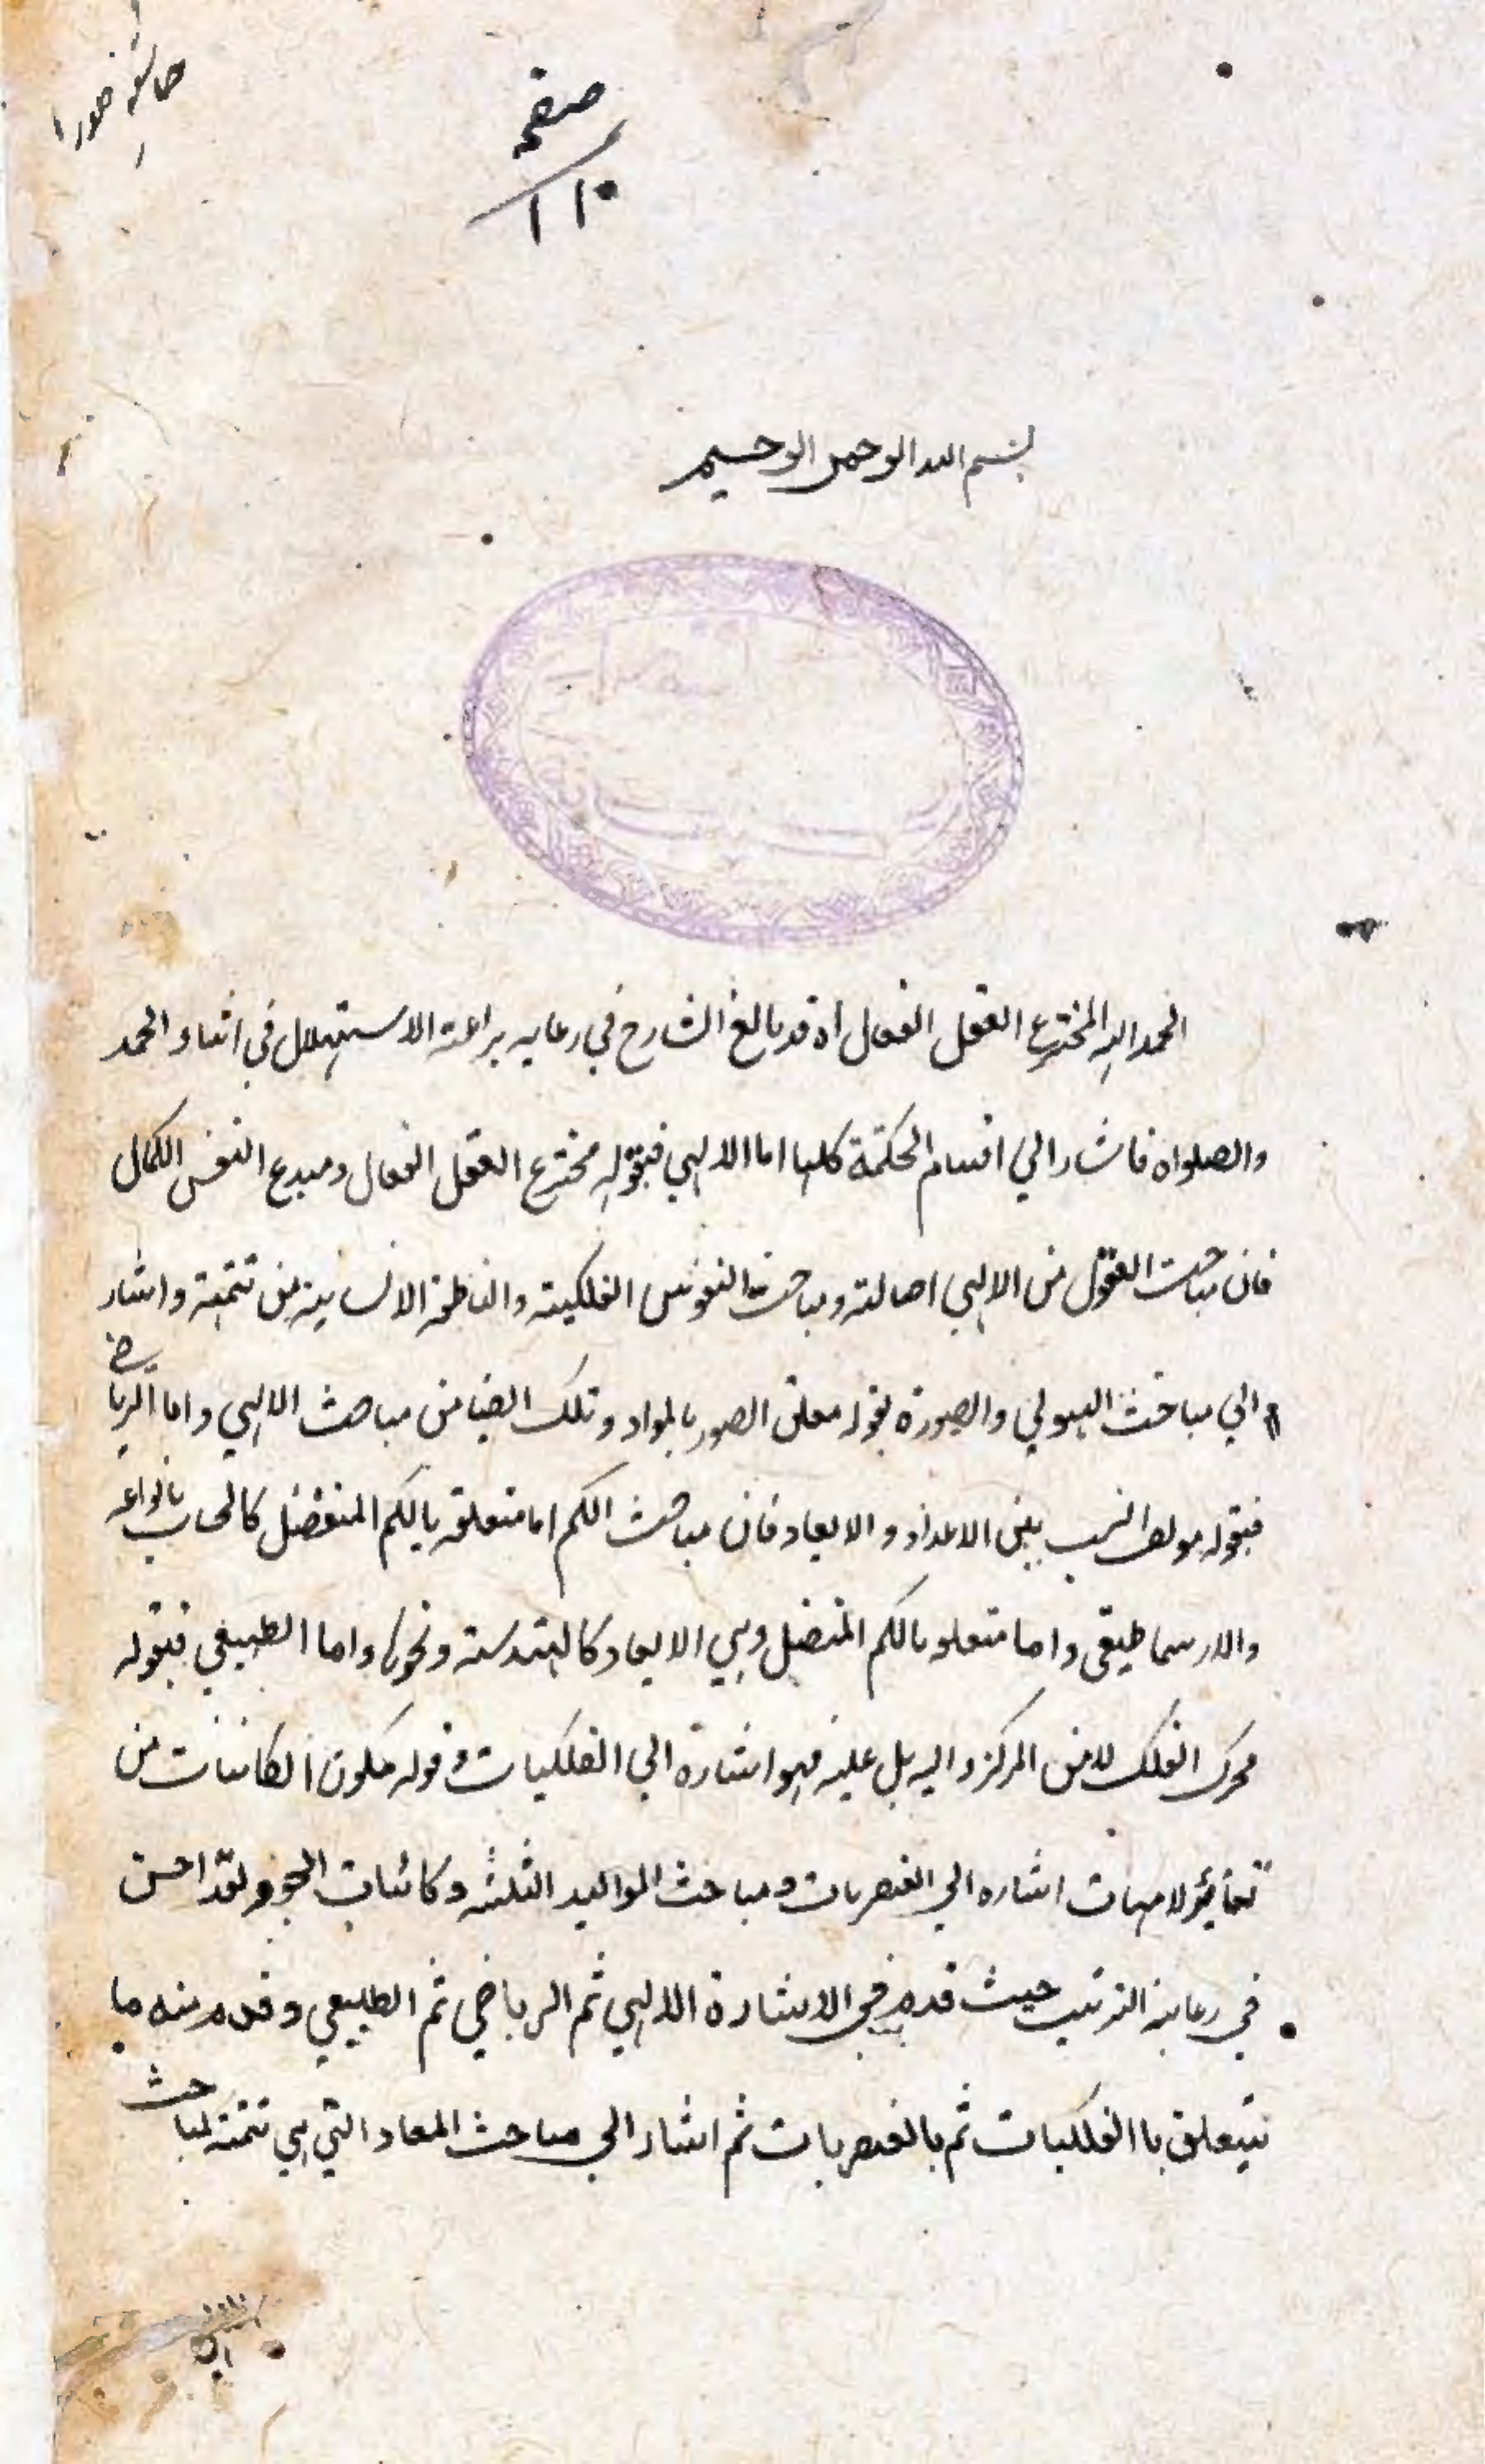 صفحه
۱۱۰
بسم الله الرحمن الرحيم
الحمد لله المخترع العقل الفعال اه قد بالغ الشارح في رعايه براعة الاستهلال في اثناء الحمد
والصلواة فاشار الي اقسام الحكمة كلها اما الالهي فبقوله مخترع العقل الفعال ومبدع النفس الكمال
فان مباحث العقول من الالهي اصالته ومباحث النفوس الفلكيته والناطقة الانسانيته من تتمته واشار
الي مباحث الهيولي والصورة بقوله معلق الصور بالمواد وتلك ايضا من مباحث الالهي واما الرياضي
فبقوله مولف النسب بين الاعداد والابعاد فان مباحث الكم اما متعلقه بالكم المنفصل كالحساب بانواعه
والارسماطيقي واما متعلقه بالكم المتصل وهي الابعاد كالهندسته ونحوها واما الطبيعي فبقوله
محرك الفلك لا من المركز واليه بل عليه فهو اشارة الي الفلكيات وقوله مكون الكائنات من
الامهات اشاره الي العنصريات ومباحث المواليد الثلثه وكائنات الجو ولقد احسن
في رعاية الترتيب حيث قدم في الاشارة الالهي ثم الرياضي ثم الطبيعي وقدم منه ما
يتعلق باالفلكيات ثم بالعنصريات ثم اشار الي مباحث المعاد التي هي تتمته لمباحث